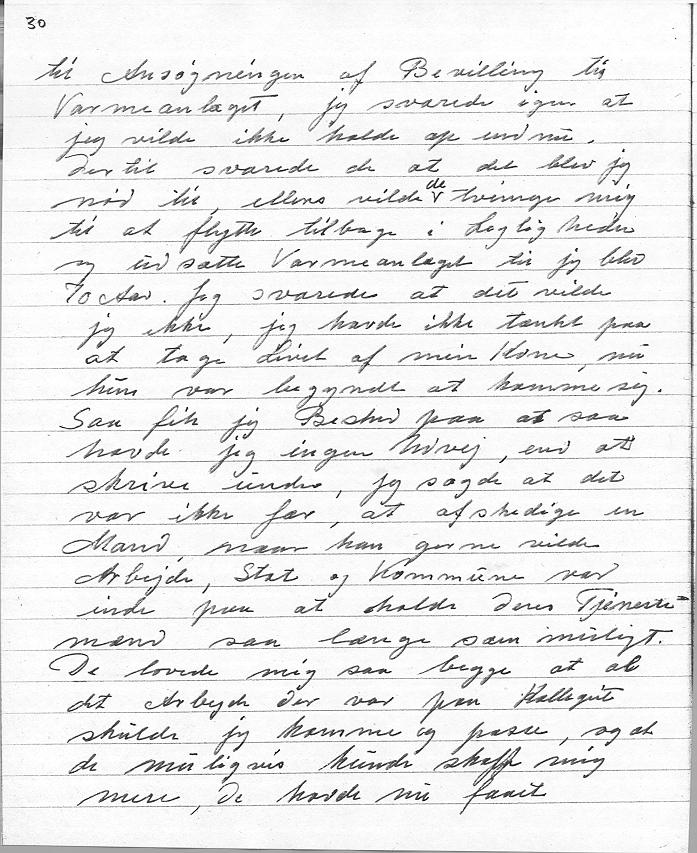 30
til Ansøgningen af Bevilling til
Varmeanlæget, jeg svarede igen at
jeg vilde ikke holde op endnu.
Dertil svarede de at det blev jeg
nød til, ellers vilde de tvinge mig
til at flytte tilbage i Leglighedn
og udsætte Varmeanlæget til jeg blev
70 Aar. Jeg svarede at det vilde
jeg ikke, jeg havde ikke tænkt paa
at tage Livet af min Kone, nu
hun var begyndt at komme sig.
Saa fik jeg Besked paa at saa
havde jeg ingen Udvej, end at
skrive under, jeg sagde at det
var ikke fær, at afskedige en
Mand, naar han gerne vilde
Arbejde, Stat og Kommune var
inde paa at holde deres Tjeneste-
mænd saa længe som muligt.
De lovede mig saa begge at al
det Arbejde der var paa
skulde jeg komme og passe, og at
de muligvis kunde skaffe mig
mere, De havde nu faaet